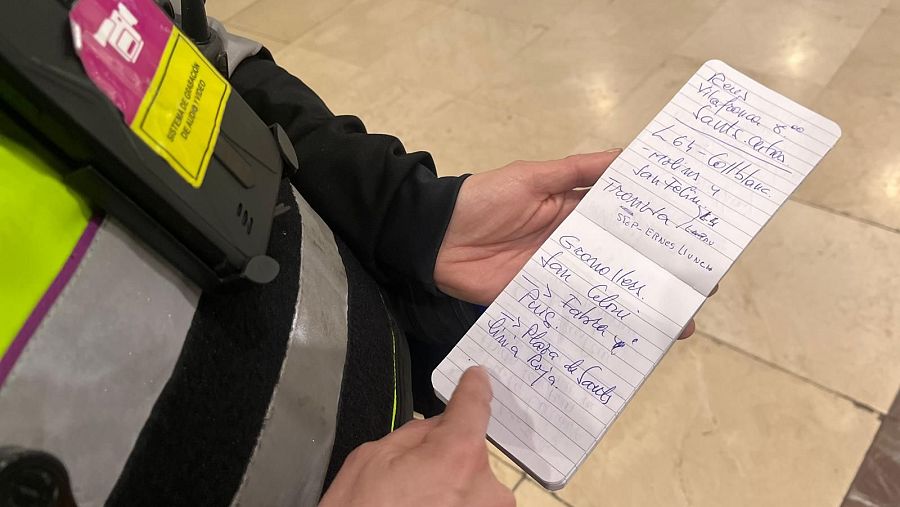 SISTEMA DE GRABACIÓN
DE AUDIO Y VIDEO
Reus
Vilafranca 8:00
Sants.
L64- Collblanc
-Molins y
San Feliu
TROMBIA /
STOP-ERNES LLUNCH
Granollers.
San Celoni.
-> Fabra y
Puig.
-> Plaza de Sants
línia Roja.